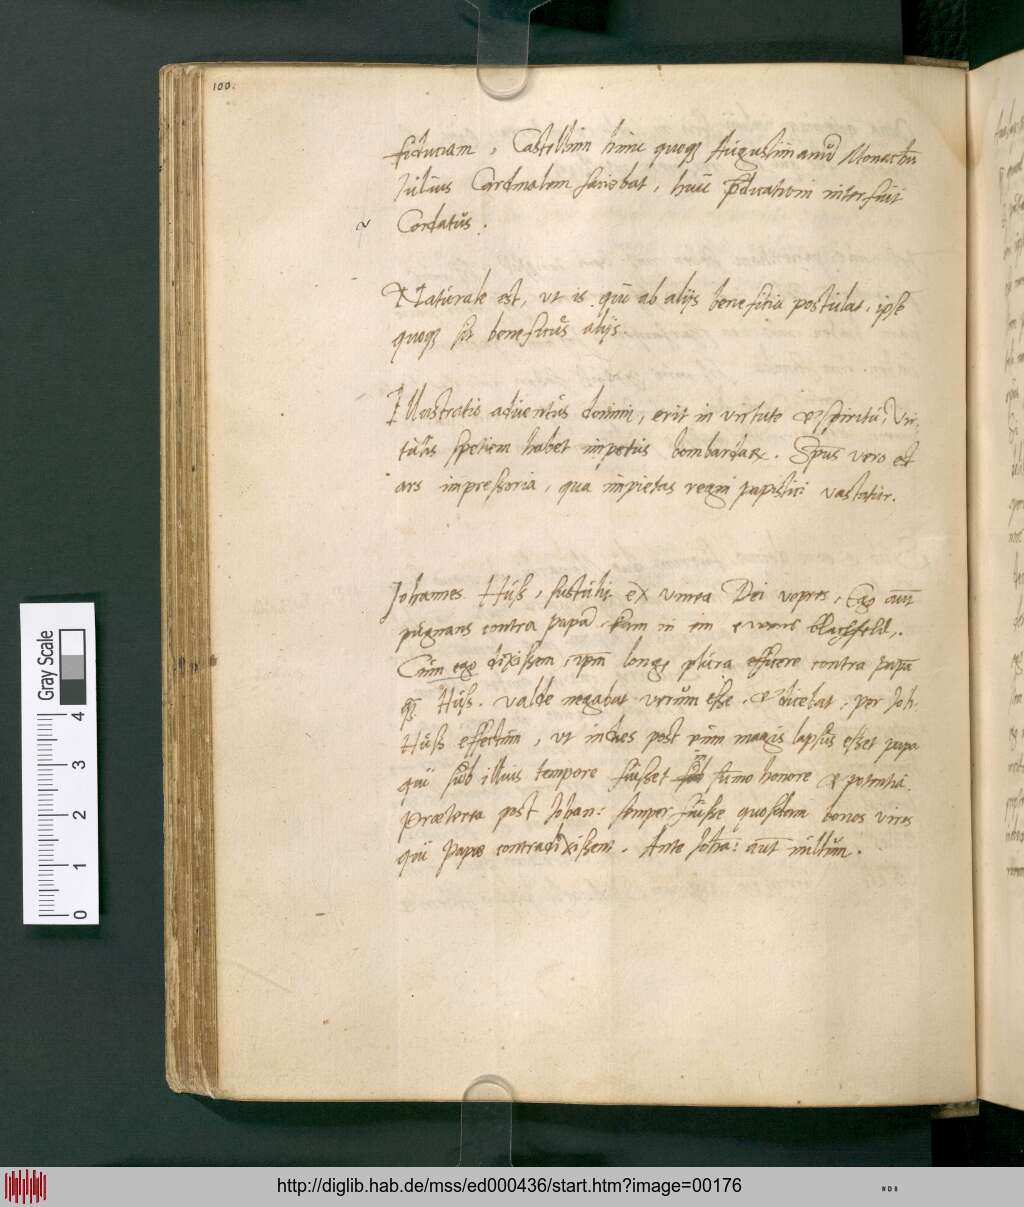 100.
fiduciam, Castellum hinc quoqȝ Augustinianū Monachū
Julius Cardinalem faciebat, huic p̄dicationi interfuit
Cordatus.
Naturale est, ut is qui ab alijs beneficia postulat, ipse
quoqȝ sit beneficus alijs.
Illustratio adventus domini, erit in virtute et spiritu, Vir-
tutis speciem habet impetus bombardae. Sp̄us vero est
ars impressoria, qua impietas regni papistici vastatur.
Johannes Huss, sustulit ex vinea Dei vepres, Ego aūt
pugnans contra papā kam in ein blachfeld.
Cum ego dixissem, ipm longe plura effecere contra papā
qȝ Huss. valde negabat verum esse, et dicebat, per Joh.
Huss effectum, ut indies post eum magis lapsus esset papa
qui sub illius tempore fuisset in sumo honore et potentia.
Praeterea post Johan: semper fuisse quosdam bonos viros
qui Papae contradixissent. Ante Joha: aūt nullum.
Gray Scale
4
3
2
1
0
http://diglib.hab.de/mss/ed000436/start.htm?image=00176
WDB